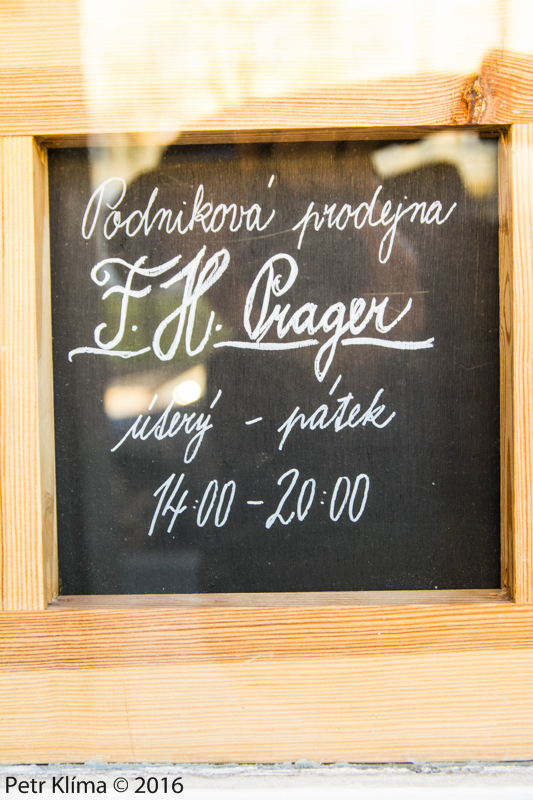 Podniková prodejna
F. H. Prager
úterý - pátek
14:00 - 20:00
Petr Klíma © 2016